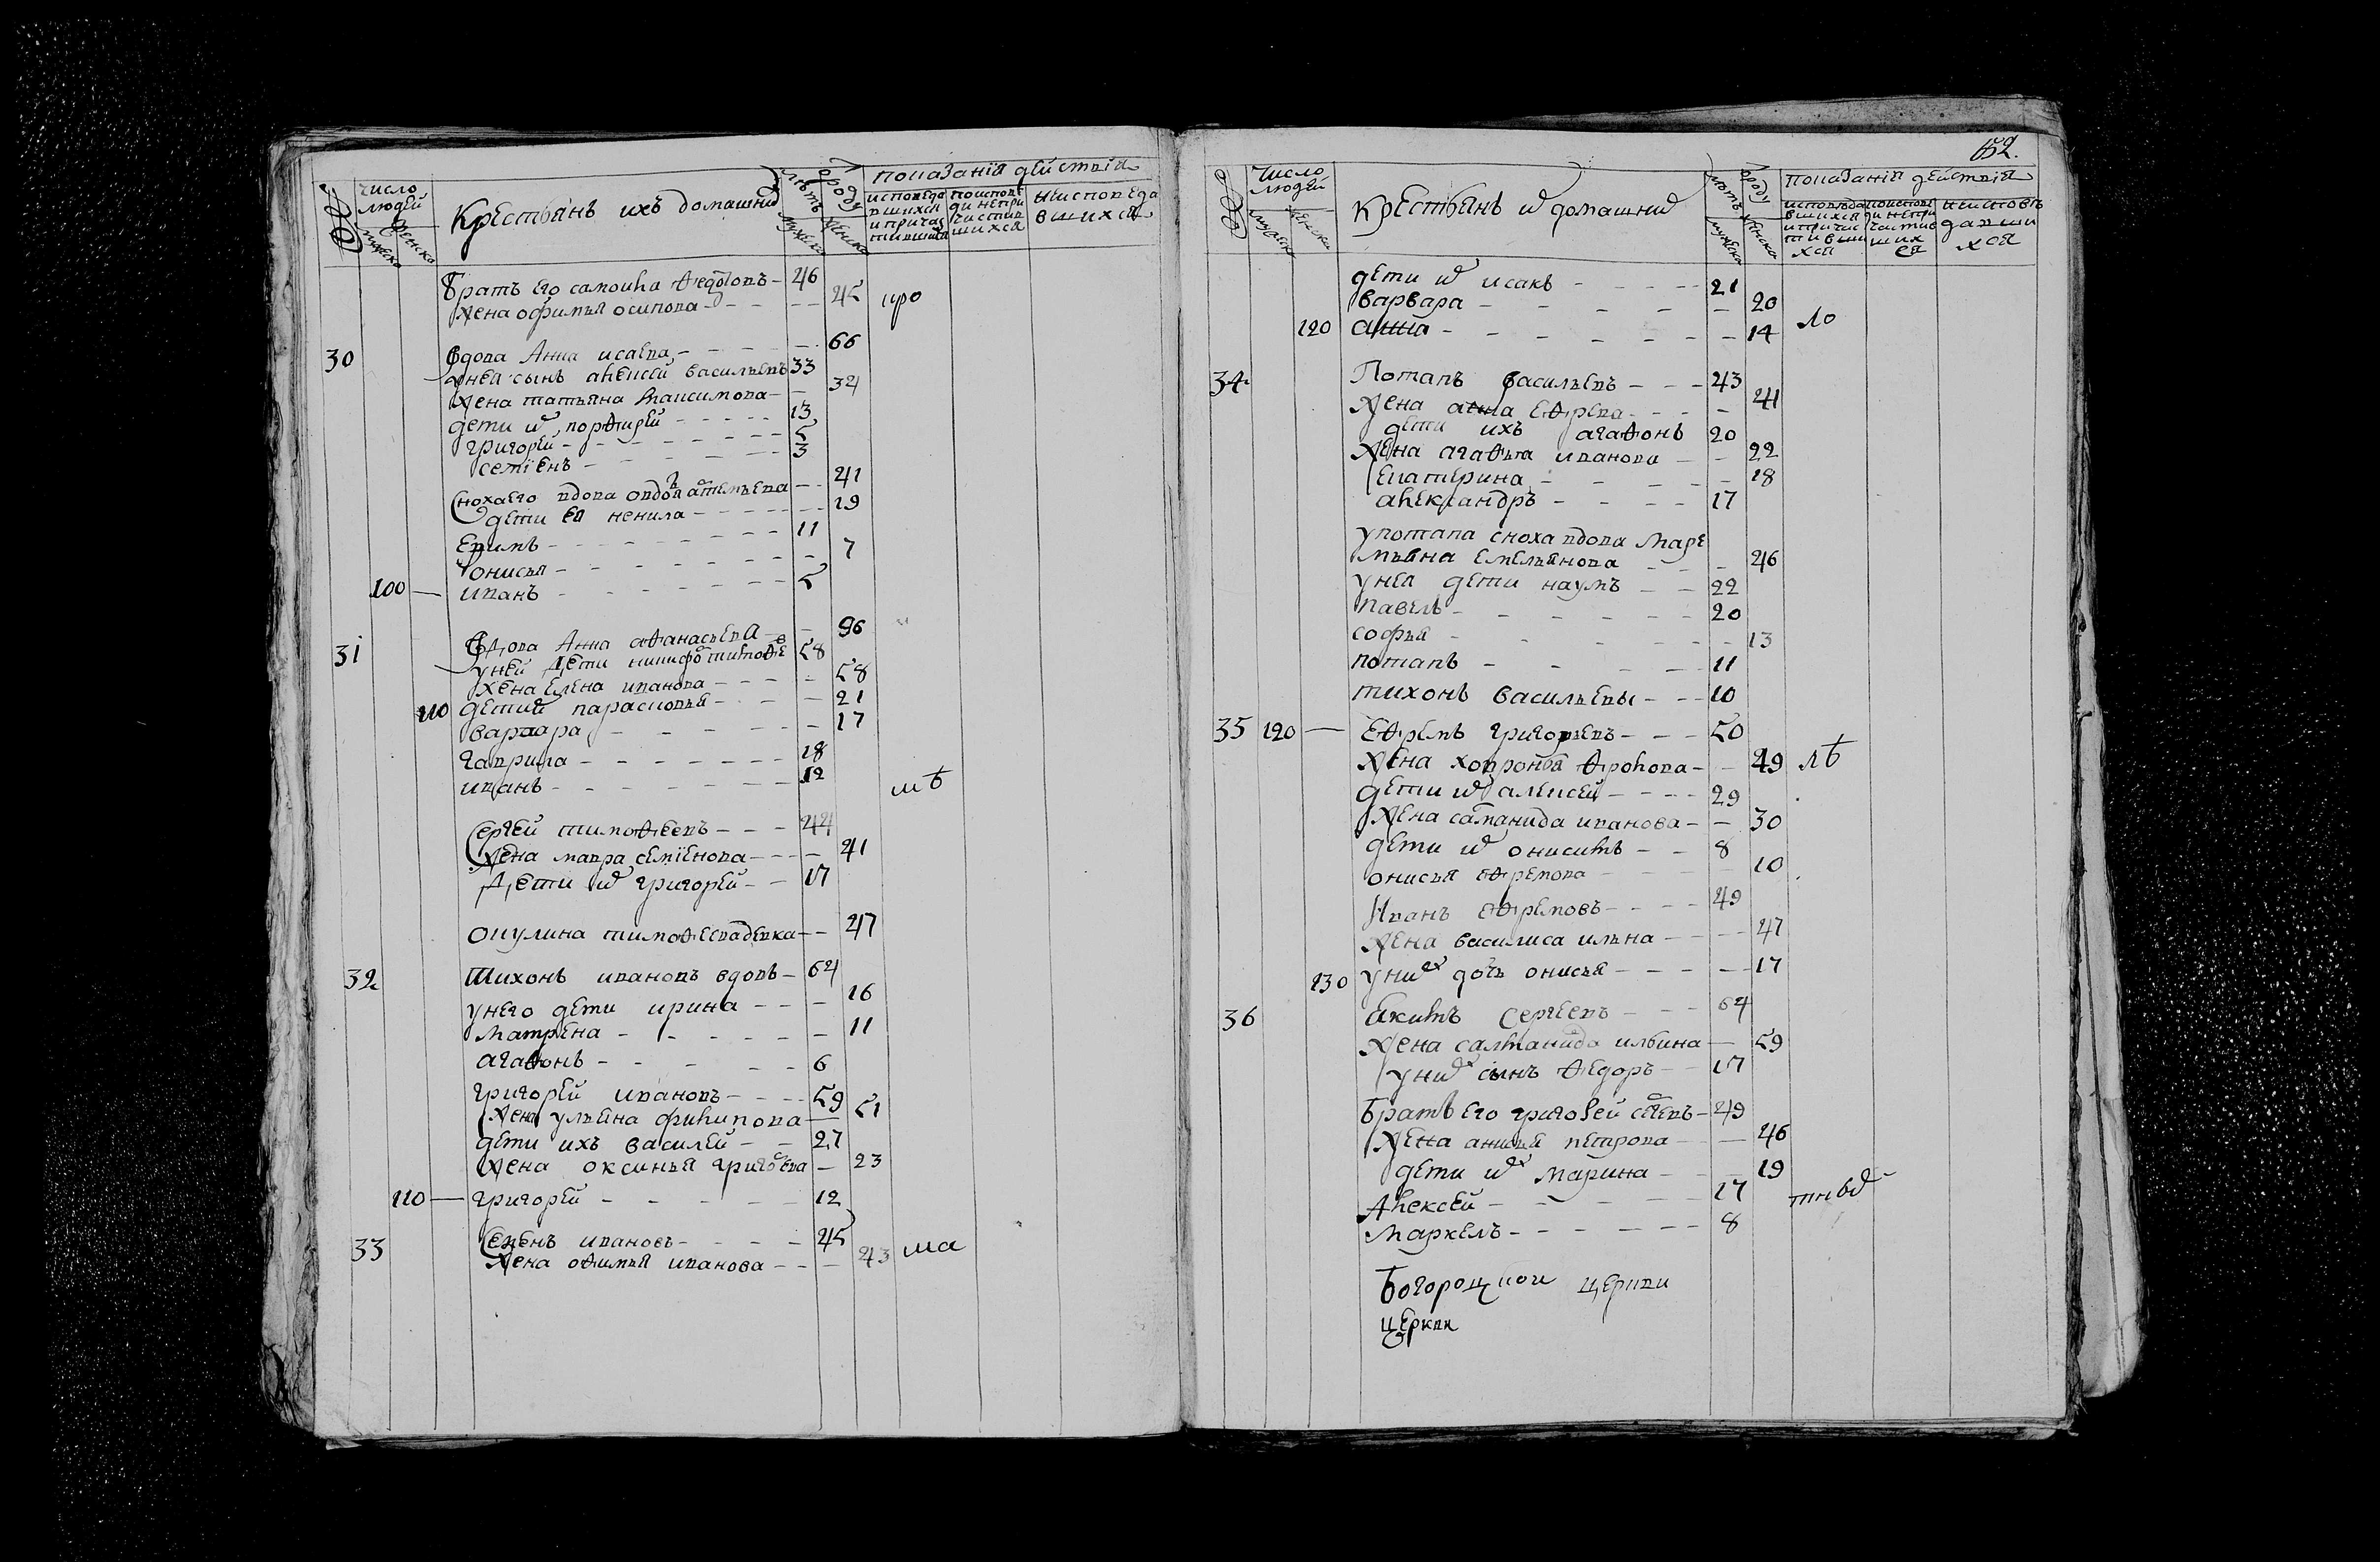 число людей
мужеска женска
Крестьянъ ихъ домашнихъ
лѣтъ ѿроду
мужеска женска
показанїя действїя
исповеда вшихся и причас тившихся
поисповеди непри частив шихся
неисповеда вшихся
братъ его самоила федотовъ - 46
жена офимья осипова - 45
30 вдова Анна исаева - 66
унея сынъ алексей васильевъ 33
жена татьяна максимова - 34
дети их порфирей - 13
григорей - 5
семïенъ - 3
сноха его вдова овдотя - 41
дети ея ненила - 19
ефимъ - 11
онисья - 7
100 — иванъ - 5
31 вдова Анна афанасьева - 96
уней дети никифоръ тимофеевъ 58
жена елена иванова - 58
110 дети их парасковья - 21
варвара - 17
гаврила - 18
иванъ - 12
сергей тимофеевъ - 44
жена мавра семïенова - 41
дети их григорей - 17
окулина тимофеева девка - 47
32 тихонъ ивановъ вдовъ - 64
унего дети ирина - 16
матрена - 11
агафонъ - 6
григорей ивановъ - 59
жена ульяна филипова - 51
дети ихъ василей - 27
жена оксинья григоева - 23
110 — григорей - 12
33 семенъ ивановъ - 45
жена офимья иванова - 43 ма
652.
число людей
мужеска женска
крестьянъ их домашних
лѣтъ ѿроду
мужеска женска
показанïя действïя
исповѣда вшихся и причас тивши хся
поисповеди непри частив ших ся
неисповѣ давши хся
дети их исакъ - 21
варвара - 20
120 анна - 14 ло
34 Потапъ васильевъ - 43
жена анна ефрева - 41
дети ихъ агафонъ 20
жена агафья иванова - 22
екатерина - 18
александръ - 17
употапа сноха вдова маре
мьяна емельянова - 46
унея дети наумъ - 22
павелъ - 20
софья - 13
потапъ - 11
тихонъ васильевы - 10
35 120 — ефремъ григорьевъ - 50
жена хавронья фролова - 49 лѣ
дети их алексей - 29
жена саманида иванова - 30
дети их онисимъ - 8
онисья ефремова - 10
Иванъ ефремовъ - 49
жена василиса ильина - 47
130 уних дочь онисья - 17
36 екимъ сергеевъ - 64
жена салманида ильина - 59
уних сынъ федоръ - 17
братъ его григорей сеевъ - 49
жена анисья петрова - 46
дети их марина - 19
Алексей - 17
маркелъ - 8
Богороцкои церкви
церкви